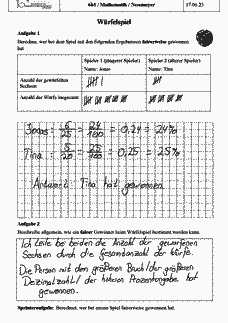 6b1 / Mathematik / Neumayer
17.01.23
Würfelspiel
Aufgabe 1
Berechne, wer bei dem Spiel mit den folgenden Ergebnissen fairerweise gewonnen hat
Spieler 1 (jüngerer Spieler) Spieler 2 (älterer Spieler)
Name: Jonas Name: Tina
Anzahl der gewürfelten
Sechsen
Anzahl der Würfe insgesamt
Jonas: 6/25 = 24/100 = 0,24 = 24%
Tina: 5/20 = 25/100 = 0,25 = 25%
Antwort: Tina hat gewonnen.
Aufgabe 2
Beschreibe allgemein, wie ein fairer Gewinner beim Würfelspiel bestimmt werden kann.
Ich teile bei beiden die Anzahl der geworfenen
Sechsen durch die Gesamtanzahl der Würfe.
Die Person mit dem größeren Bruch/der größeren
Dezimalzahl/der höheren Prozentangabe hat
gewonnen.
Sprinteraufgabe: Berechne, wer bei eurem Spiel fairerweise gewonnen hat.